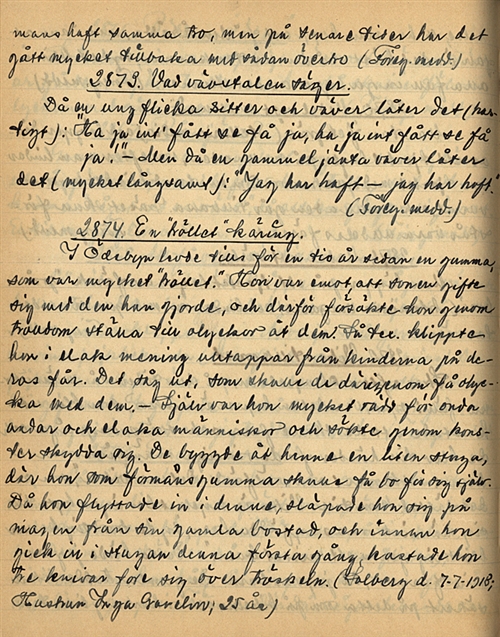 mans haft samma tro, men på senare tider har det
gått mycket tillbaka med sådan övertro (Föreg. medd.)
2873. Vad vävstolen säger.
Då en ung flicka sitter och väver låter det (has-
tigt): "Ha ja int' fått se få ja, ha ja int fått se få
ja." – Men då en gammel jänta väver låter
det (mycket långsamt): "Jag har haft – jag har haft."
(Föreg. medd.)
2874. En "tröllet" käring.
I Ödebyn levde tills för en tio år sedan en gumma,
som var mycket "tröllet." Hon var emot, att sonen gifte
sig med den han gjorde, och därför försökte hon genom
trolldom ställa till olyckor åt dem. Så t.ex. klippte
hon i elak mening ulltappar från kinderna på de-
ras får. Det såg ut, som skulle de därigenom få olyc-
ka med dem. – Själv var hon mycket rädd för onda
andar och elaka människor och sökte genom kons-
ter skydda sig. De byggde åt henne en liten stuga,
där hon som förmånsgumma skulle få bo för sig själv.
Då hon flyttade in i denna, släpade hon sig på
magen från sin gamla bostad, och innan hon
gick in i stugan denna första gång, kastade hon
tre knivar före sig över tröskeln. (Solberg d. 7-7-1918;
Hustrun Inga Gavelin; 25 år)